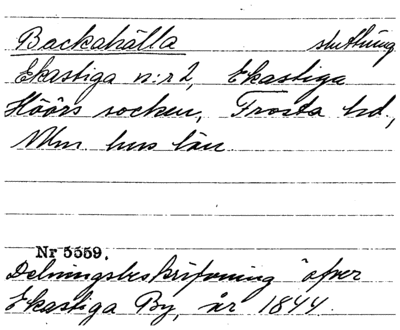 Backahälla sluttning
Ekastiga n:r 2, Ekastiga
Höörs socken, Frosta hd.,
Mlm. hus län.
Nr 5559.
Delningsbeskrifvning öfver
Ekastiga By, år 1844.